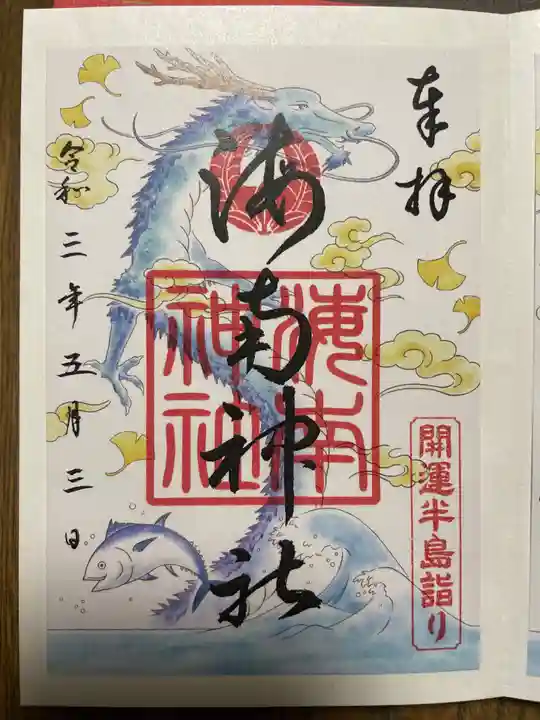 奉拝
海南神社
海南
神社
開運半島詣り
令和三年五月三日